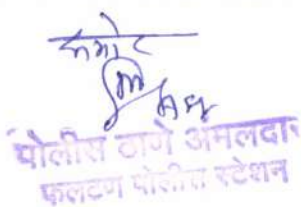 समोर
पोलीस ठाणे अंमलदार
फलटण पोलीस स्टेशन